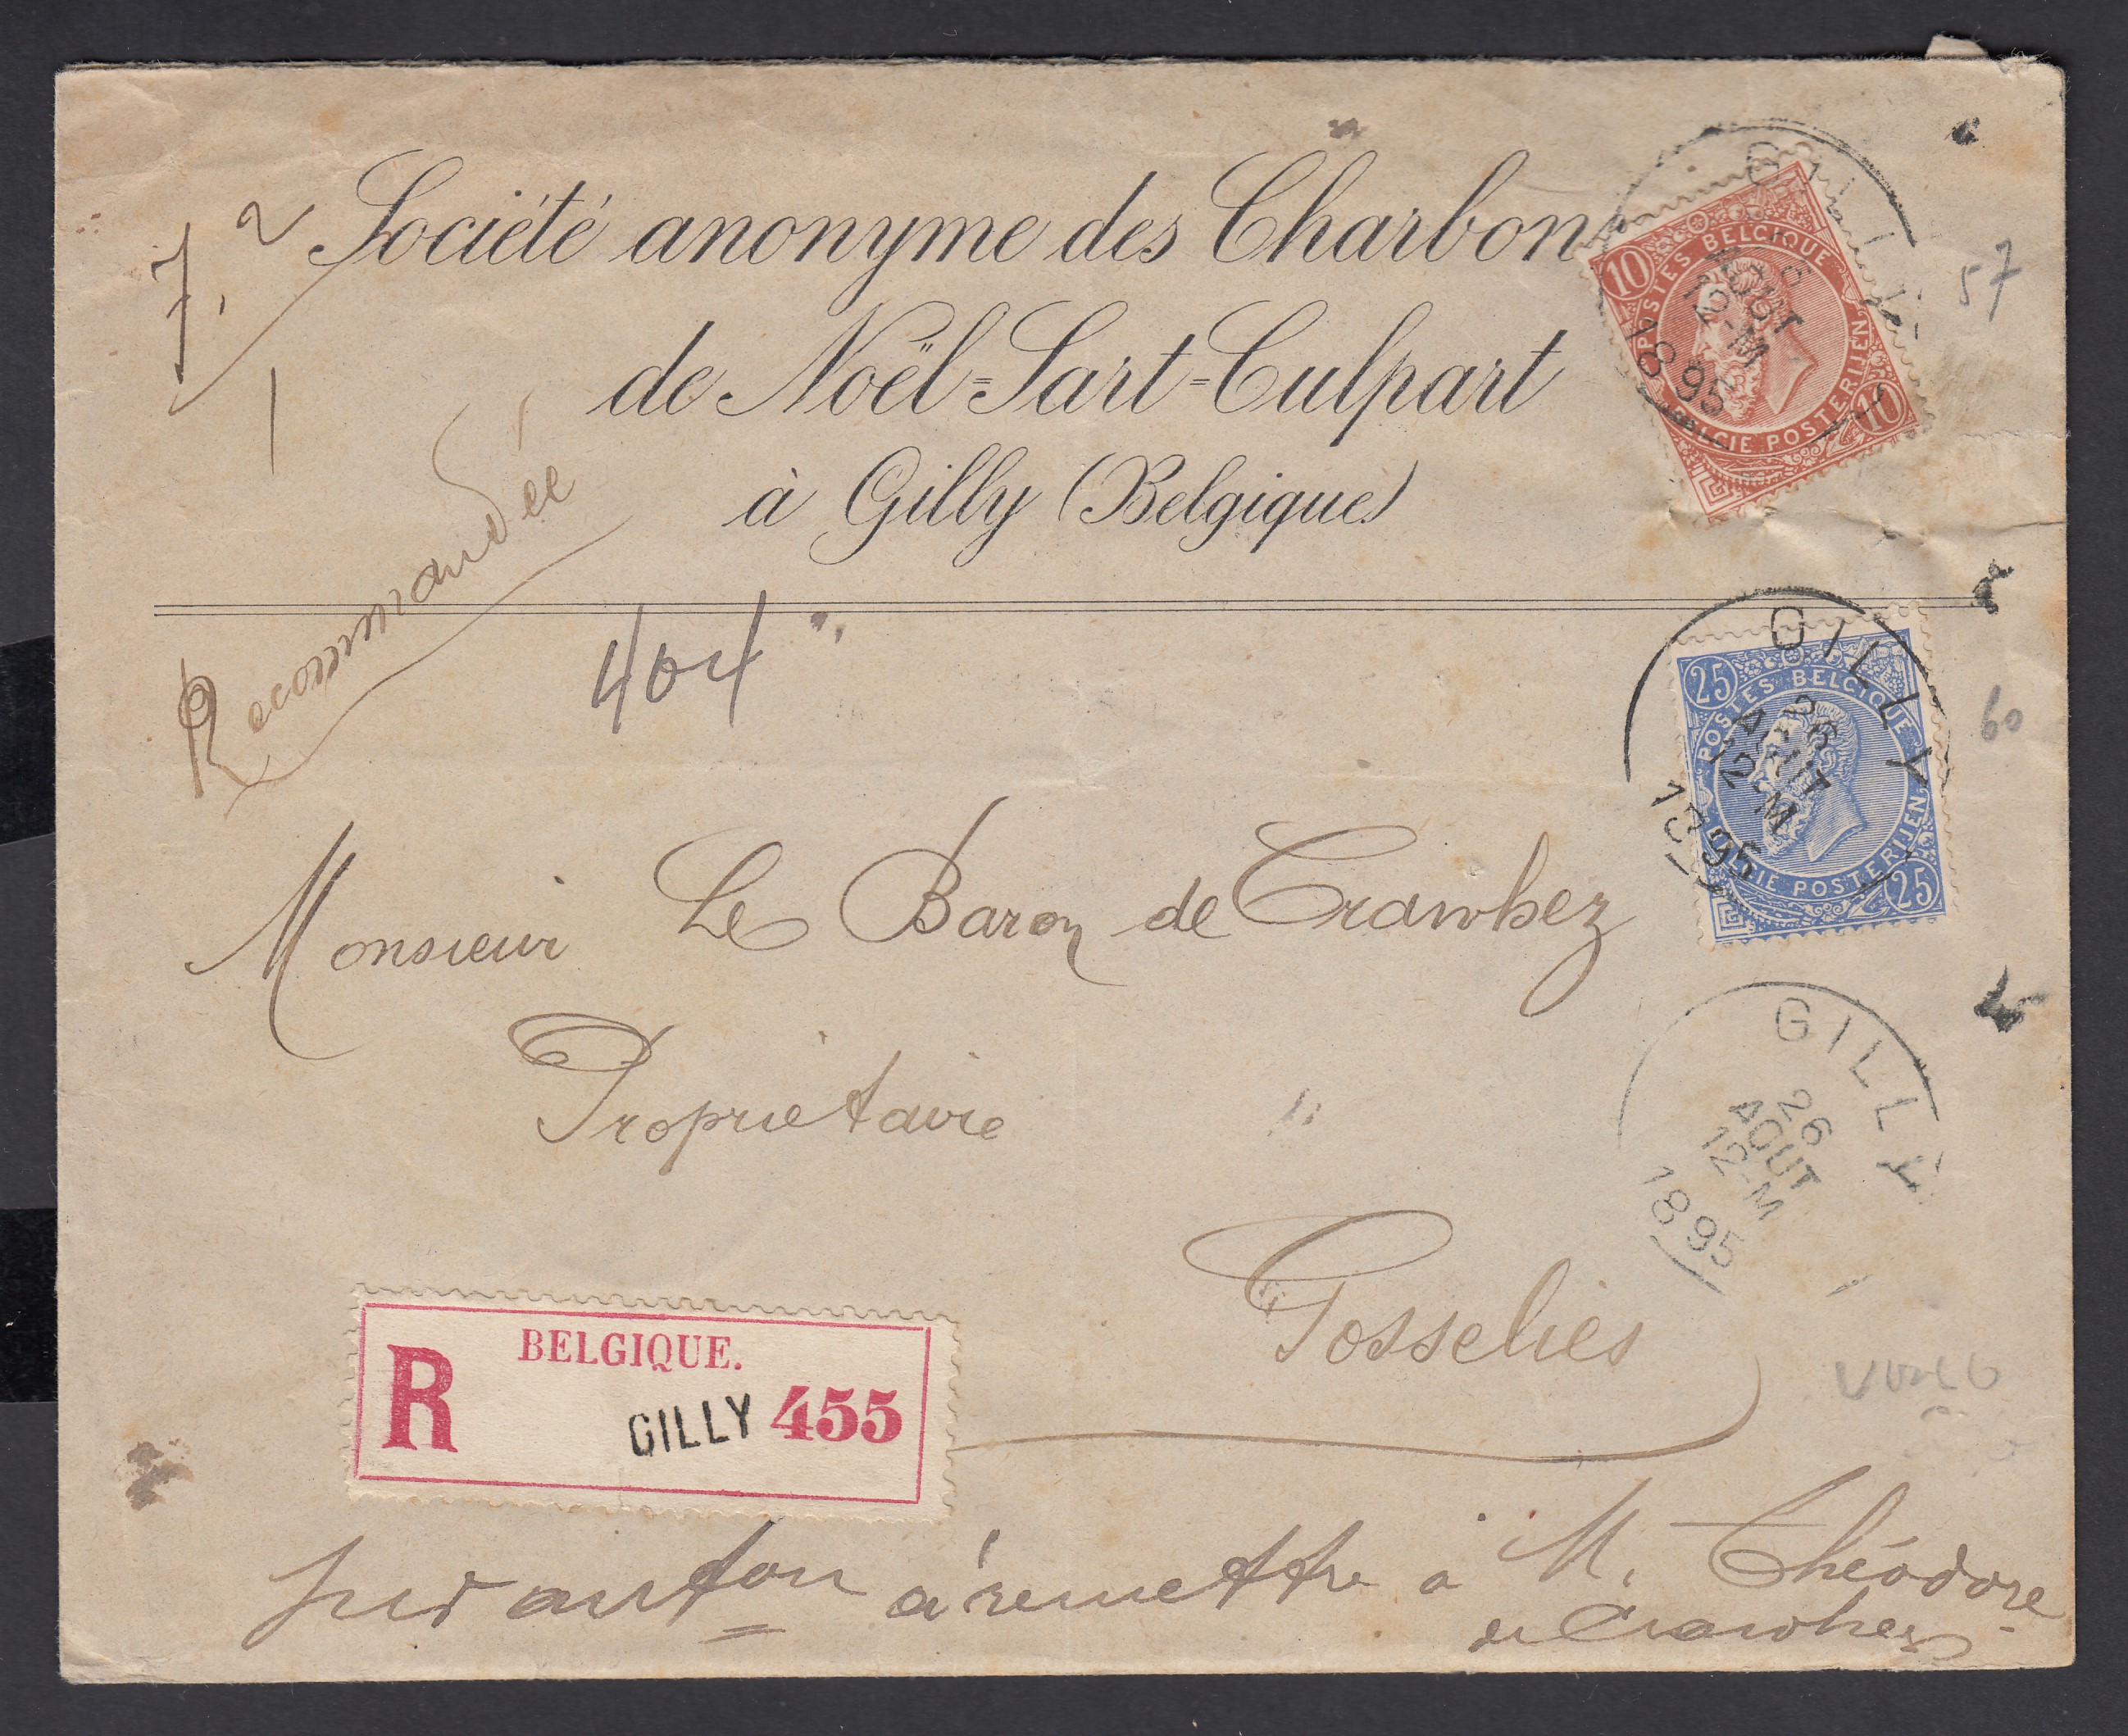 7, 2
1
Société anonyme des Charbon
de Noël=Sart=Culpart
à Gilly (Belgique)
Recommandée
404
10
POSTES BELGIQUE
BELGIE POSTERIJEN
10
GILLY
26
AOUT
12-M
1895
57
25
POSTES BELGIQUE
BELGIE POSTERIJEN
25
GILLY
26
AOUT
12-M
1895
60
Monsieur Le Baron de Crawhez
Propriétaire
GILLY
26
AOUT
12-M
1895
Gosselies
BELGIQUE.
R GILLY 455
à remettre a M. Théodore
de Crawhez